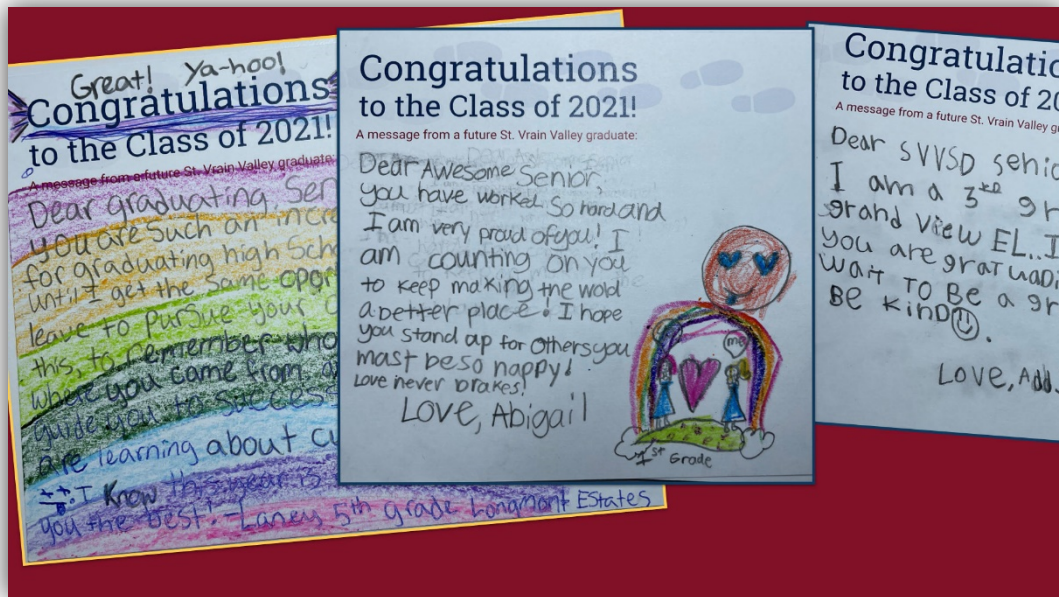 Great! Ya-hoo!
Congratulations
to the Class of 2021!
A message from a future St. Vrain Valley graduate:
Dear graduating, Sen
you are such an incre
for graduating high Scho
until I get the same oport
leave to pursue your
this, to remember who
where you came from, a
guide you to success
are learning about cu
I Know this year is
you the best! -Laney 5th grade Longmont Estates
Congratulations
to the Class of 2021!
A message from a future St. Vrain Valley graduate:
Dear Awesome Senior,
you have worked so hard and
I am very proud of you! I
am counting on you
to keep making the wold
a better place! I hope
you stand up for others you
mast be so happy!
Love never brakes!
Love, Abigail
me
1st Grade
Congratulatio
to the Class of 20
A message from a future St. Vrain Valley gr
Dear SVVSD senio
I am a 3rd gr
grand view EL.. I
you are gratuadi
wait To Be a gr
Be Kind
Love, Add